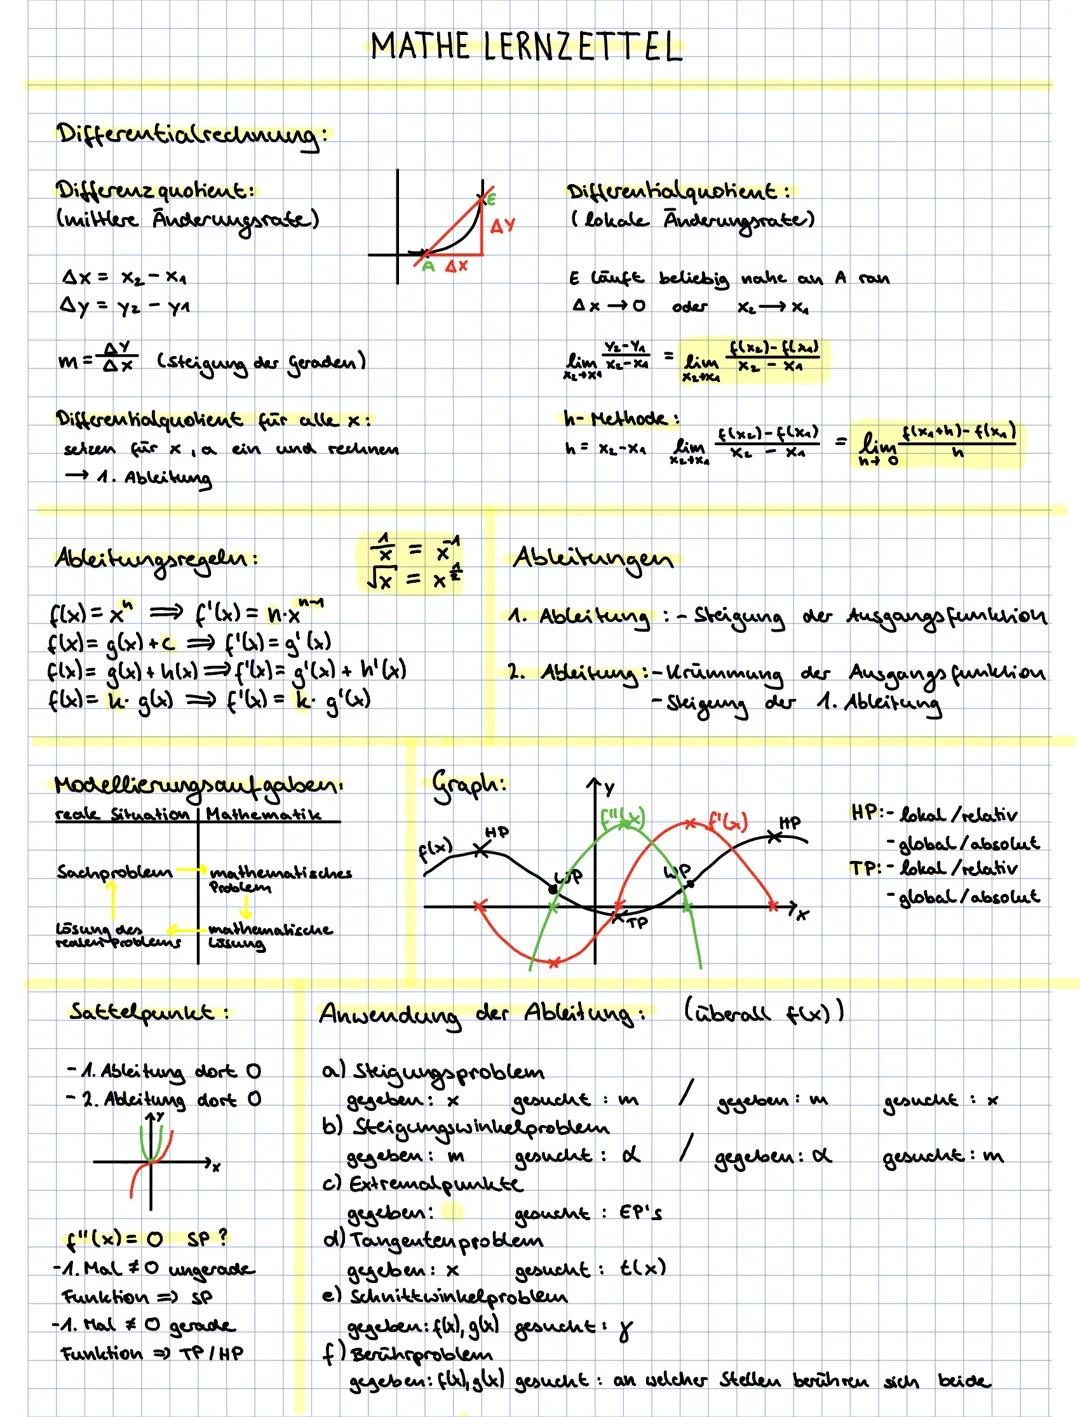 MATHE LERNZETTEL
Differentialrechnung:
Differenzquotient:
(mittlere Änderungsrate)
Δx = x₂ - x₁
Δy = y₂ - y₁
m = Δy/Δx (Steigung der Geraden)
E
Δy
A Δx
Differentialquotient:
(lokale Änderungsrate)
E läuft beliebig nahe an A ran
Δx → 0 oder x₂ → x₁
lim x₂→x₁ (y₂-y₁)/(x₂-x₁) = lim x₂→x₁ (f(x₂)-f(x₁))/(x₂ - x₁)
Differentialquotient für alle x:
setzen für x₁ a ein und rechnen
→ 1. Ableitung
h-Methode:
h = x₂-x₁ lim x₂→x₁ (f(x₂)-f(x₁))/(x₂ - x₁) = lim h→0 (f(x₁+h)-f(x₁))/h
Ableitungsregeln:
1/x = x⁻¹
√x = x^½
f(x) = xⁿ ⟹ f'(x) = n·xⁿ⁻¹
f(x) = g(x) + c ⟹ f'(x) = g'(x)
f(x) = g(x) + h(x) ⟹ f'(x) = g'(x) + h'(x)
f(x) = k · g(x) ⟹ f'(x) = k · g'(x)
Ableitungen
1. Ableitung : - Steigung der Ausgangsfunktion
2. Ableitung : - Krümmung der Ausgangsfunktion
- Steigung der 1. Ableitung
Modellierungsaufgaben:
reale Situation | Mathematik
Sachproblem → mathematisches
Problem
Lösung des ← mathematische
realen Problems Lösung
Graph:
y
f''(x) f'(x)
f(x) HP HP
WP WP
TP x
HP: - lokal/relativ
- global/absolut
TP: - lokal/relativ
- global/absolut
Sattelpunkt:
- 1. Ableitung dort 0
- 2. Ableitung dort 0
y
x
f''(x) = 0 SP?
-1. Mal ≠ 0 ungerade
Funktion ⇒ SP
-1. Mal ≠ 0 gerade
Funktion ⇒ TP/HP
Anwendung der Ableitung: (überall f(x))
a) Steigungsproblem
gegeben: x gesucht: m / gegeben: m gesucht: x
b) Steigungswinkelproblem
gegeben: m gesucht: α / gegeben: α gesucht: m
c) Extremalpunkte
gegeben: gesucht: EP's
d) Tangentenproblem
gegeben: x gesucht: t(x)
e) Schnittwinkelproblem
gegeben: f(x), g(x) gesucht: γ
f) Berührproblem
gegeben: f(x), g(x) gesucht: an welcher Stellen berühren sich beide